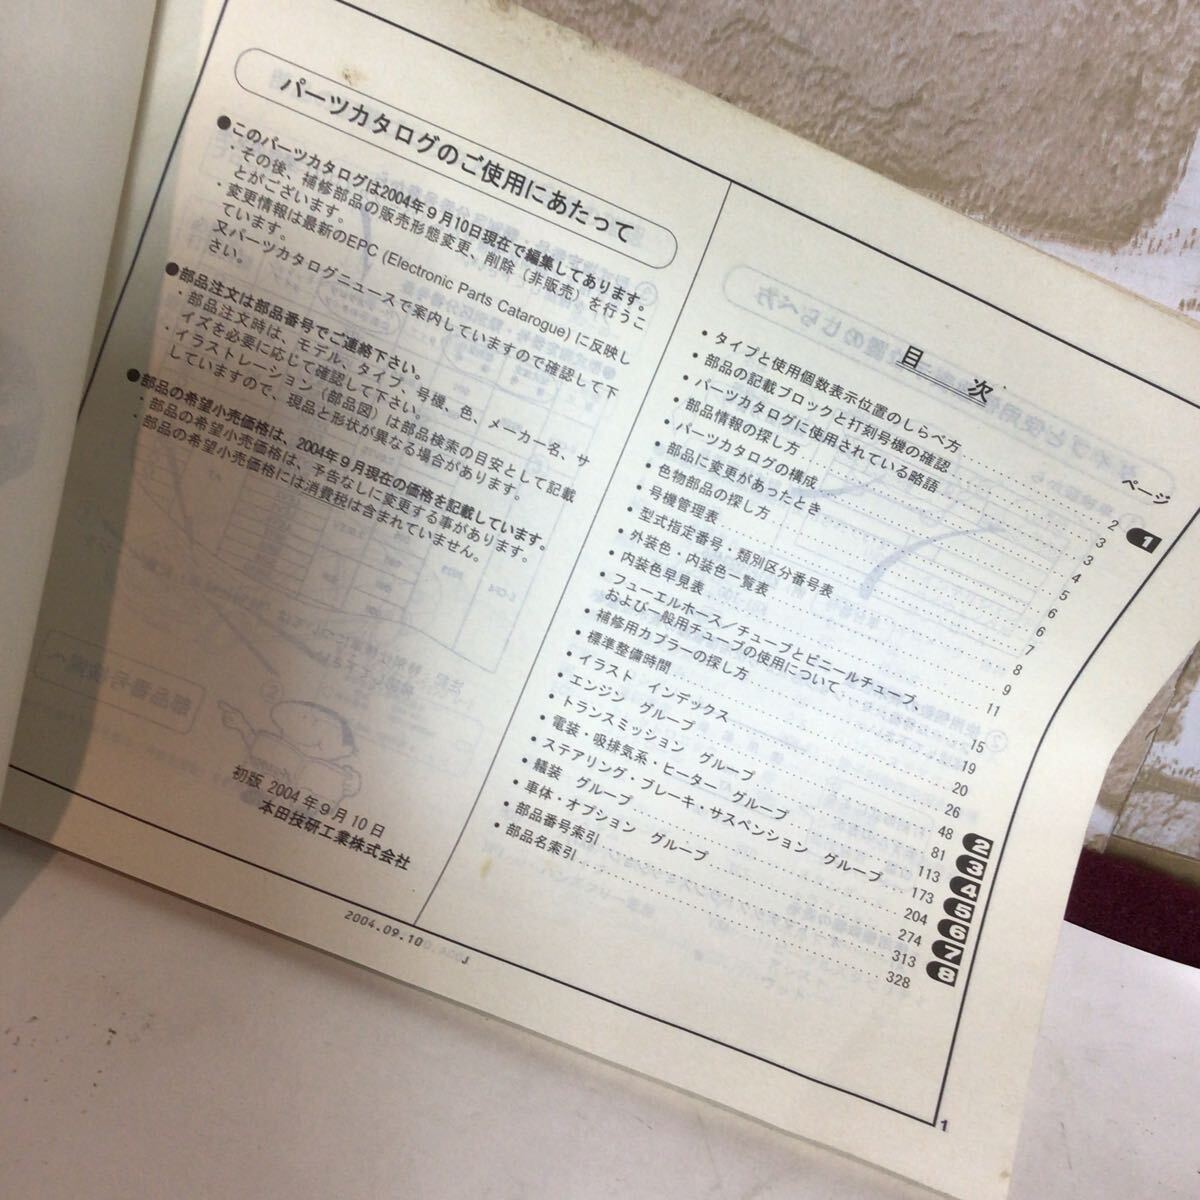 パーツカタログのご使用にあたって
●このパーツカタログは2004年9月10日現在で編集してあります。
・その後、補修部品の販売形態変更、削除（非販売）を行うこ
とがございます。
・変更情報は最新のEPC (Electronic Parts Catarogue) に反映し
ています。
又パーツカタログニュースで案内していますので確認して下
さい。
●部品注文は部品番号でご連絡下さい。
・部品注文時は、モデル、タイプ、号機、色、メーカー名、サ
イズを必要に応じて確認して下さい。
・イラストレーション（部品図）は部品検索の目安として記載
していますので、現品と形状が異なる場合があります。
●部品の希望小売価格は、2004年9月現在の価格を記載しています。
・部品の希望小売価格は、予告なしに変更する事があります。
・部品の希望小売価格には消費税は含まれていません。
初版 2004年9月10日
本田技研工業株式会社
2004.09.10 J
目 次
ページ
・タイプと使用個数表示位置のしらべ方 2
・部品の記載ブロックと打刻号機の確認 3
・パーツカタログに使用されている略語 3
・部品情報の探し方 4
・パーツカタログの構成 5
・部品に変更があったとき 6
・色物部品の探し方 6
・号機管理表 7
・型式指定番号・類別区分番号表 8
・外装色・内装色一覧表 9
・内装色早見表 11
・フューエルホース／チューブとビニールチューブ、
および一般用チューブの使用について 15
・補修用カプラーの探し方 19
・標準整備時間 20
・イラスト インデックス 26
・エンジン グループ 48
・トランスミッション グループ 81
・電装・吸排気系・ヒーター グループ 113
・ステアリング・ブレーキ・サスペンション グループ 173
・艤装 グループ 204
・車体・オプション グループ 274
・部品番号索引 313
・部品名索引 328
1
2
3
4
5
6
7
8
1